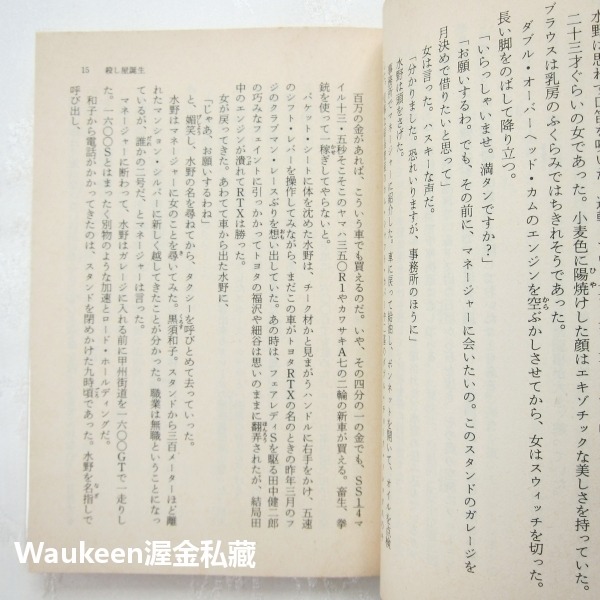 水野は思わず
二十三才ぐらいの女であった。小麦色に陽焼けした顔はエキゾチックな美しさを持っていた。
ブラウスは乳房のふくらみではちきれそうであった。
ダブル・オーバーヘッド・カムのエンジンを空ぶかしさせてから、女はスウィッチを切った。
長い脚をのばして降り立つ。
「いらっしゃいませ。満タンですか？」
「お願いするわ。でも、その前に、マネージャーに会いたいの。このスタンドのガレージを
月決めで借りたいと思って」
女は言った。ハスキーな声だ。
「分かりました。恐れいりますが、事務所のほうに」
水野は頭をさげた。
15 殺し屋誕生
百万の金があれば、こういう車でも買えるのだ。いや、その四分の一の金でも、SS1⁄4マ
イル十三・五秒そこそこのヤマハ三五〇R1やカワサキA七の二輪の新車が買える。畜生、拳
銃を使って一稼ぎしてやらないと。
バケット・シートに体を沈めた水野は、チーク材かと見まがうハンドルに右手をかけ、五速
のシフト・レバーを操作してみながら、まだこの車がトヨタRTXの名のときの昨年三月のフ
ジのクラブマン・レースぶりを想い出していた。あの時は、フェアレディSを駆る田中健二郎
の巧みなフェイントに引っかかってトヨタの福沢や細谷は思いのままに翻弄されたが、結局田
中のエンジンが潰れてRTXは勝った。
女が戻ってきた。あわてて車から出た水野に、
「じゃあ、お願いするわね」
と、媚笑し、水野の名を尋ねてから、タクシーを呼びとめて去っていった。
水野はマネージャーに女のことを尋いてみた。黒須和子。スタンドから三百メーターほど離
れたマンション・シルバーに新しく越してきたことが分かった。職業は無職ということになっ
ているが、誰かの二号だ、とマネージャーは言った。
マネージャーに断わって、水野はガレージに入れる前に甲州街道を一六〇〇GTで一走りし
た。一六〇〇Sとはまったく別物のような加速とロード・ホールディングだ。
和子から電話がかかってきたのは、スタンドを閉めかけた九時頃であった。水野を名指しで
呼び出し、
Waukeen渥金私藏